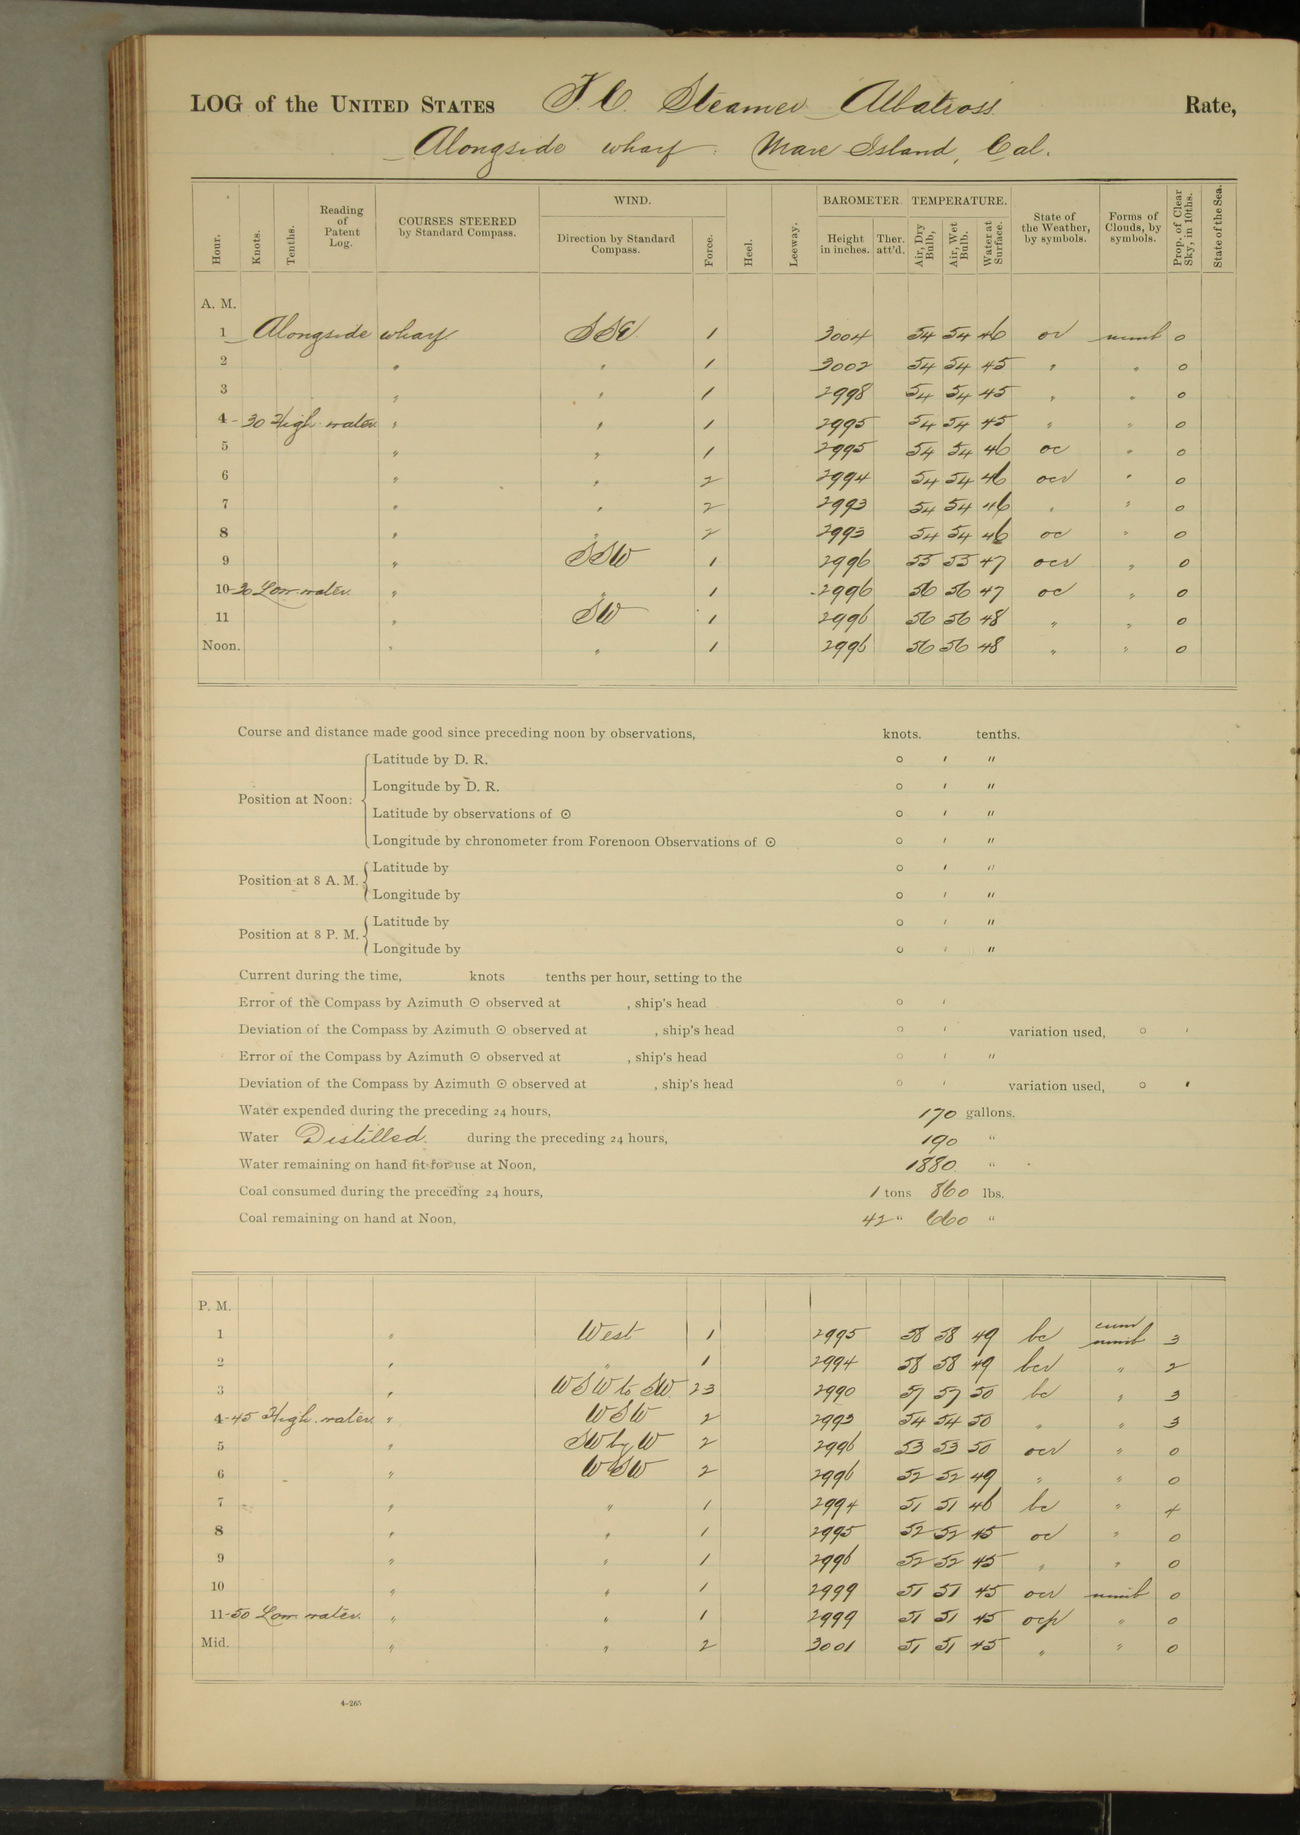 LOG of the UNITED STATES F. C. Steamer Albatross Rate,
Alongside wharf: Mare Island, Cal.
WIND. BAROMETER. TEMPERATURE.
Hour. Knots. Tenths. Reading of Patent Log. COURSES STEERED by Standard Compass. Direction by Standard Compass. Force. Heel. Leeway. Height in inches. Ther. att'd. Air, Dry Bulb, Air, Wet Bulb. Water at Surface. State of the Weather, by symbols. Forms of Clouds, by symbols. Prop. of Clear Sky, in 10ths. State of the Sea.
A. M.
1 Alongside wharf SSE 1 3004 54 54 46 or nimb 0
2 " " 1 3002 54 54 45 " " 0
3 " " 1 2998 54 54 45 " " 0
4-30 High water " " 1 2995 54 54 45 " " 0
5 " " 1 2995 54 54 46 oc " 0
6 " " 2 2994 54 54 46 ocr " 0
7 " " 2 2993 54 54 46 " " 0
8 " " 2 2993 54 54 46 oc " 0
9 " SSW 1 2996 55 55 47 ocr " 0
10-30 Low water " " 1 2996 56 56 47 oc " 0
11 " SW 1 2996 56 56 48 " " 0
Noon. " " 1 2996 56 56 48 " " 0
Course and distance made good since preceding noon by observations, knots. tenths.
Position at Noon:
Latitude by D. R. ° ′ ″
Longitude by D. R. ° ′ ″
Latitude by observations of ☉ ° ′ ″
Longitude by chronometer from Forenoon Observations of ☉ ° ′ ″
Position at 8 A. M.
Latitude by ° ′ ″
Longitude by ° ′ ″
Position at 8 P. M.
Latitude by ° ′ ″
Longitude by ° ′ ″
Current during the time, knots tenths per hour, setting to the
Error of the Compass by Azimuth ☉ observed at , ship's head ° ′
Deviation of the Compass by Azimuth ☉ observed at , ship's head ° ′ variation used, ° ′
Error of the Compass by Azimuth ☉ observed at , ship's head ° ′ ″
Deviation of the Compass by Azimuth ☉ observed at , ship's head ° ′ variation used, ° ′
Water expended during the preceding 24 hours, 170 gallons.
Water Distilled during the preceding 24 hours, 190 "
Water remaining on hand fit for use at Noon, 1880 "
Coal consumed during the preceding 24 hours, 1 tons 860 lbs.
Coal remaining on hand at Noon, 42 " 660 "
P. M.
1 " West 1 2995 58 58 49 bc cum nimb 3
2 " " 1 2994 58 58 49 bcr " 2
3 " WSW to SW 23 2990 57 57 50 bc " 3
4-45 High water " WSW 2 2993 54 54 50 " " 3
5 " SW by W 2 2996 53 53 50 ocr " 0
6 " WSW 2 2996 52 52 49 " " 0
7 " " 1 2994 51 51 46 bc " 4
8 " " 1 2995 52 52 45 oc " 0
9 " " 1 2996 52 52 45 " " 0
10 " " 1 2999 51 51 45 ocr nimb 0
11-50 Low water " " 1 2999 51 51 45 ocp " 0
Mid. " " 2 3001 51 51 45 " " 0
4-265